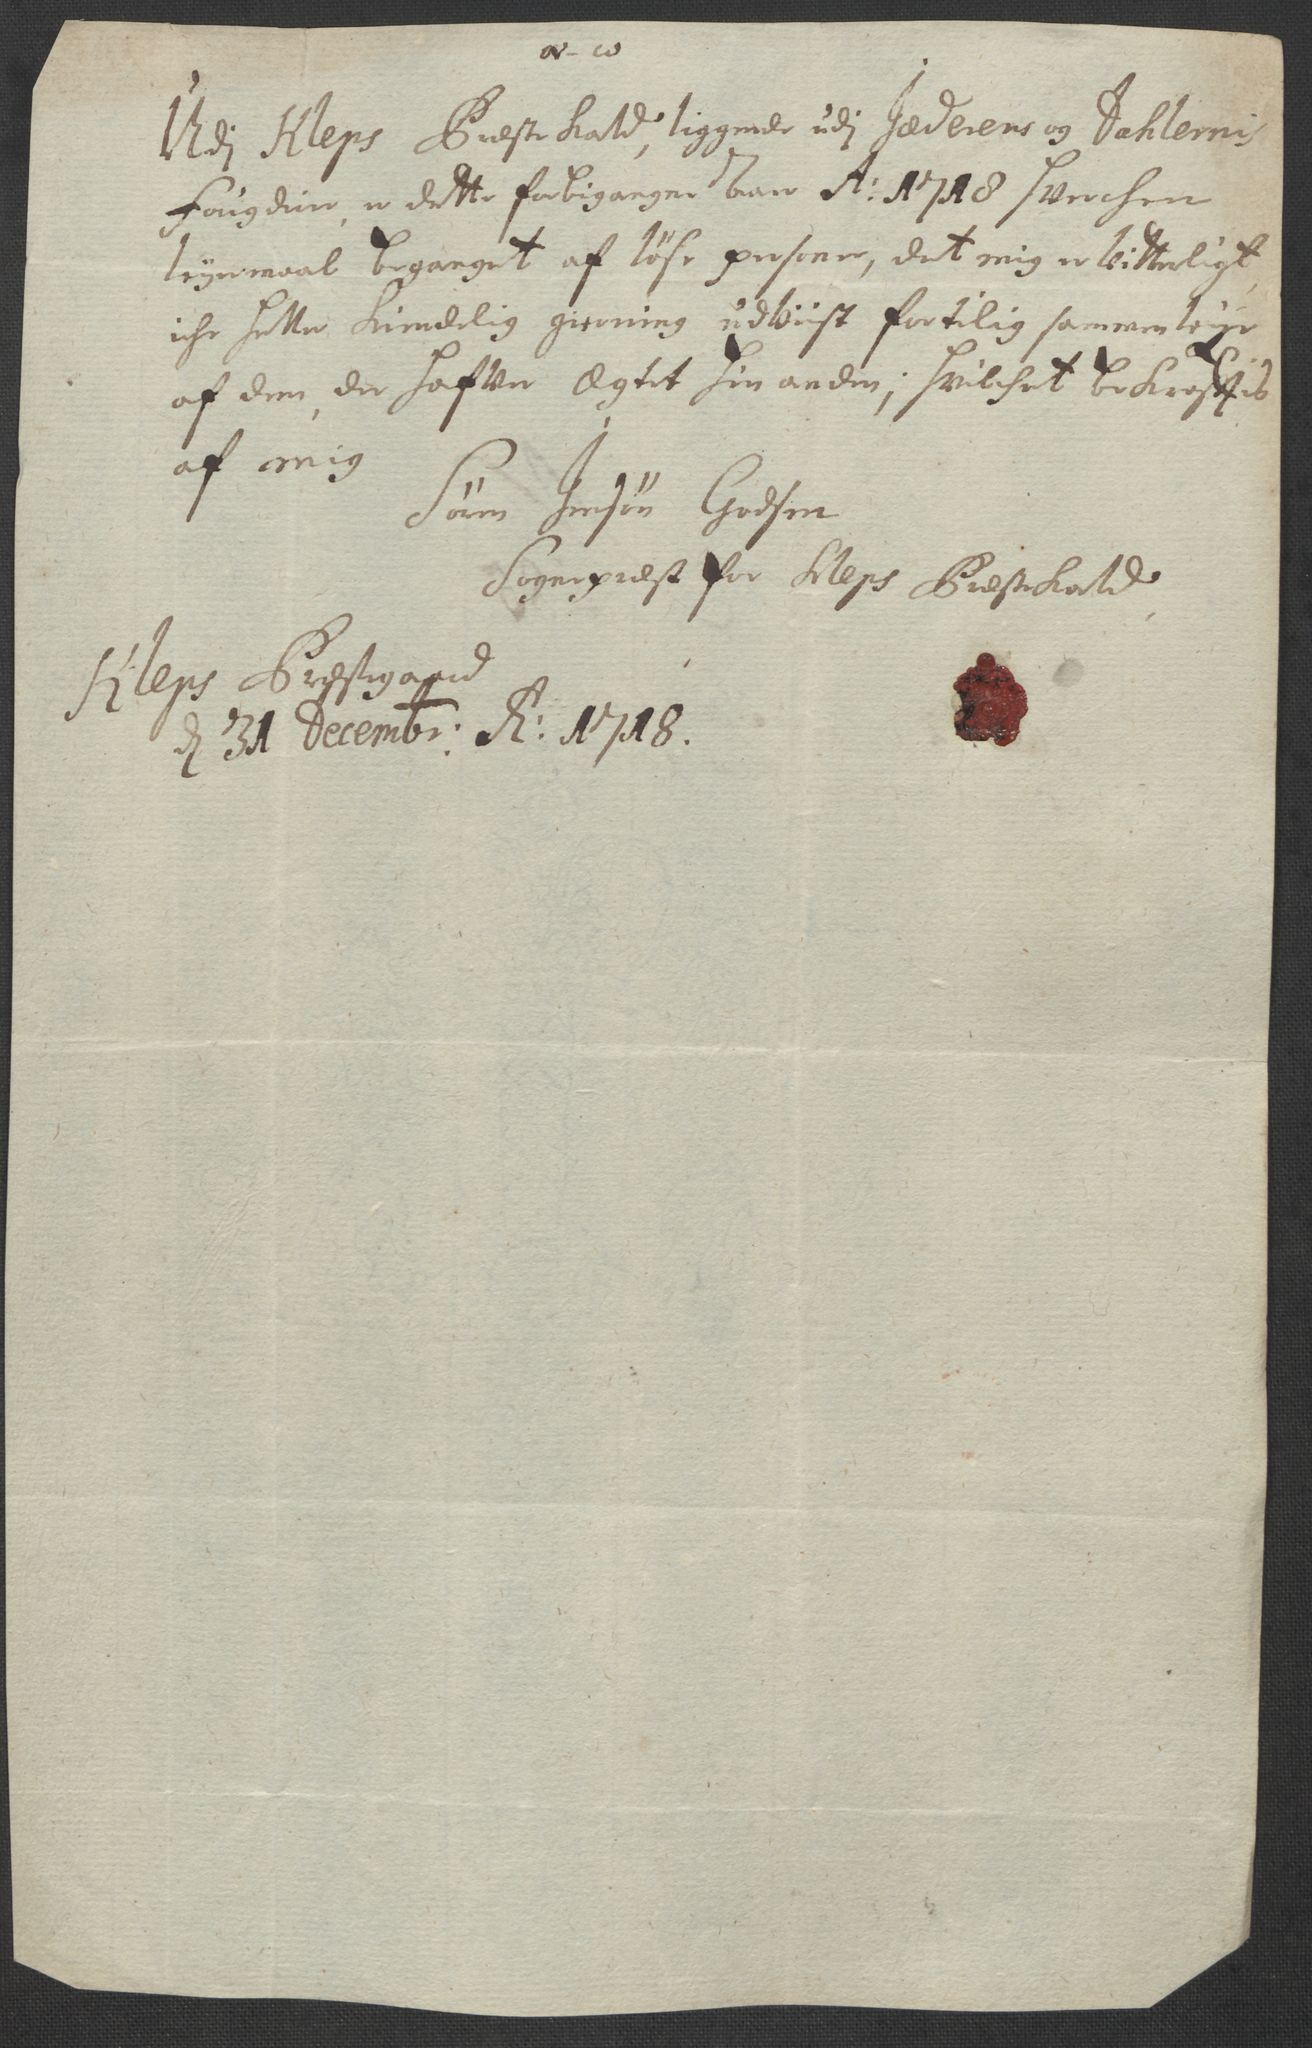 α – ω
Udj Kleps Præste kald, liggende udj Jæderens og Dahlernis
Fougderie, er dette forbigangne aar A: 1718 hverchen
leÿermaal beganget af löse personer, det mig er vitterligt,
iche heller kiendelig gierning udviist fortilig sammenleÿe
af dem, der hafver ægtet hin anden; hvilchet bekræftis
af mig
Sören Jensön Godsen
Sogneprest for Kleps Præstekald
Kleps Præstegaard
d 31 Decembr: A: 1718.